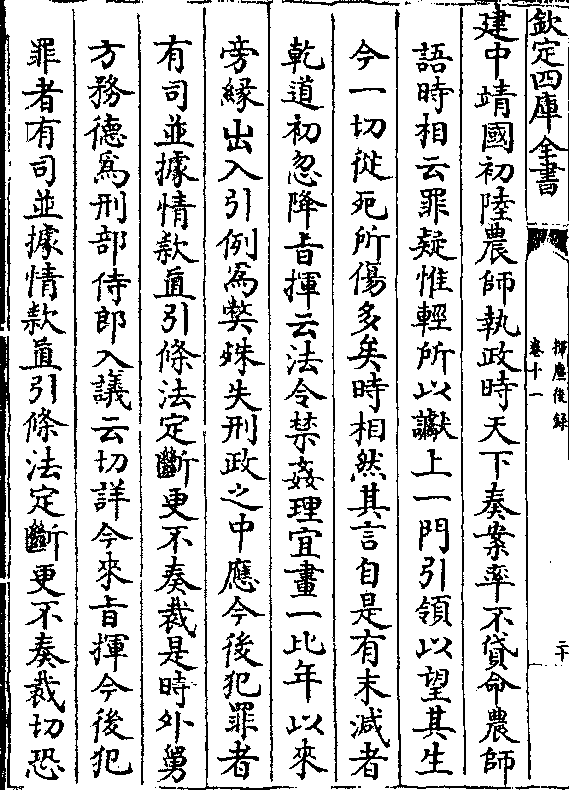 欽定四庫全書
揮麈後錄
卷十一
二十
建中靖國初陸農師執政時天下奏案率不貸命農師
語時相云罪疑惟輕所以讞上一門引領以望其生
今一切從死所傷多矣時相然其言自是有末減者
乾道初忽降旨揮云法令禁姦理宜畫一比年以來
旁緣出入引例為弊殊失刑政之中應今後犯罪者
有司並據情款直引條法定斷更不奏裁是時外舅
方務德為刑部侍郎入議云切詳今來旨揮今後犯
罪者有司並據情款直引條法定斷更不奏裁切恐